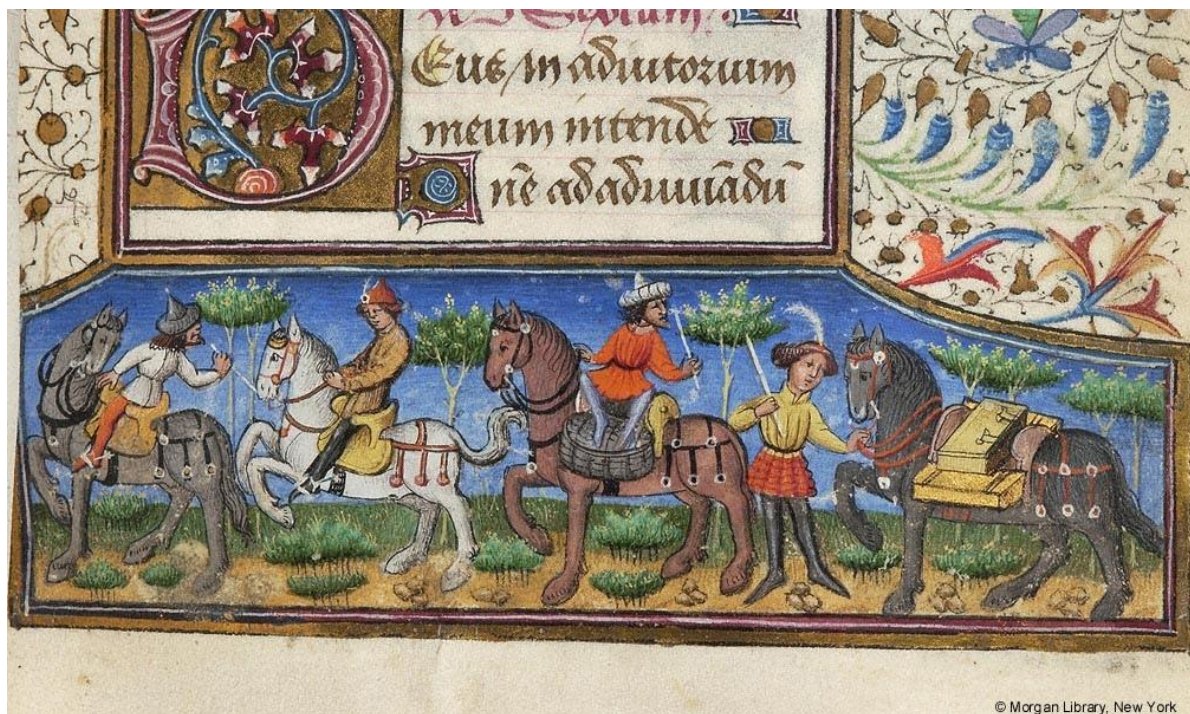 DEus in adiutorium
meum intende
Dnē ad adiuuādū
© Morgan Library, New York